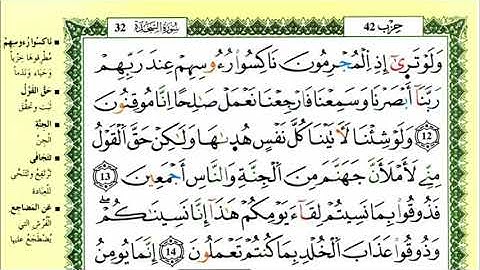 حِزْب 42
سُورَةُ السَّجْدَةِ 32
وَلَوْ تَرَىٰٓ إِذِ اِ۬لْمُجْرِمُونَ نَاكِسُواْ رُءُوسِهِمْ عِندَ رَبِّهِمْ
رَبَّنَآ أَبْصَرْنَا وَسَمِعْنَا فَارْجِعْنَا نَعْمَلْ صَٰلِحاً اِنَّا مُوقِنُونَ
12 وَلَوْ شِئْنَا لَأَتَيْنَا كُلَّ نَفْسٍ هُدَىٰهَا وَلَٰكِنْ حَقَّ اَ۬لْقَوْلُ
مِنِّے لَأَمْلَأَنَّ جَهَنَّمَ مِنَ اَ۬لْجِنَّةِ وَالنَّاسِ أَجْمَعِينَ 13
فَذُوقُواْ بِمَا نَسِيتُمْ لِقَآءَ يَوْمِكُمْ هَٰذَآ إِنَّا نَسِينَٰكُمْ
وَذُوقُواْ عَذَابَ اَ۬لْخُلْدِ بِمَا كُنتُمْ تَعْمَلُونَ 14 إِنَّمَا يُومِنُ
نَاكِسُواْ رُءُوسِهِمْ
مُطْرِقُوهَا خِزْياً
وَحَيَاءً وَنَدَماً
حَقَّ القَوْلُ
ثَبَتَ وَتَحَقَّقَ
الجِنَّةِ
الجِنّ
تَتَجَافَى
تَرْتَفِعُ وَتَتَنَحَّى
لِلْعِبَادَةِ
عَنِ المَضَاجِعِ
الفُرُشِ التي
يُضْطَجَعُ عليها